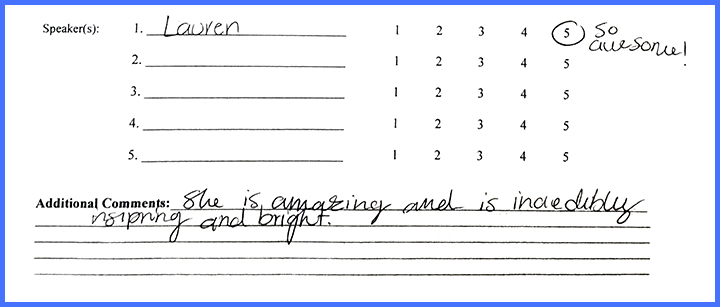 Speaker(s): 1. Lauren 1 2 3 4 5 So awesome!
2. 1 2 3 4 5
3. 1 2 3 4 5
4. 1 2 3 4 5
5. 1 2 3 4 5
Additional Comments: She is amazing and is incredibly
inspiring and bright.